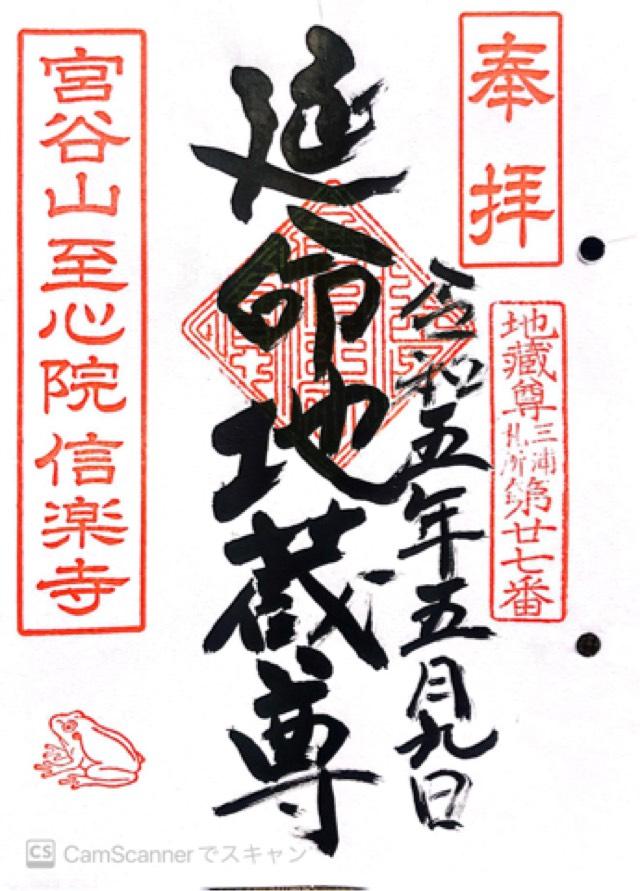 奉拝
地蔵尊三浦札所第廿七番
令和五年五月九日
延命地蔵尊
宮谷山至心院信楽寺
CS CamScannerでスキャン